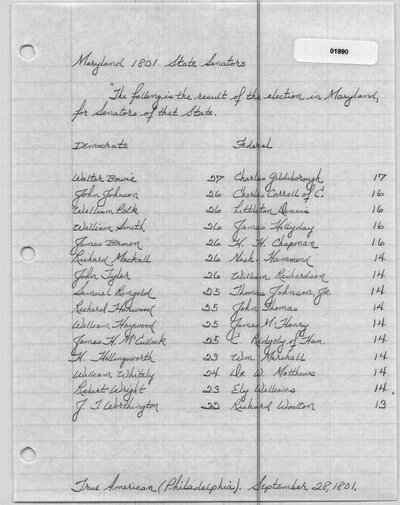 01990
Maryland 1801 State Senators
"The following is the result of the election in Maryland,
for Senators of that State.
Democrats Federal
Walter Bowie 27 Charles Goldsborough 17
John Johnson 26 Charles Carroll of C. 16
William Polk 26 Littleton Dennis 16
William Smith 26 James Hollyday 16
James Brown 26 H. H. Chapman 16
Richard Mackall 26 Nich. Hammond 14
John Tyler 26 William Richardson 14
Samuel Ringold 25 Thomas Johnson, Jr. 14
Richard Harwood 25 John Thomas 14
William Haywood 25 James McHenry 14
James H. McCullock 25 C. Ridgely of Ham. 14
H. Hollingsworth 23 Wm. Marshall 14
William Whitely 24 Dr. W. Matthews 14
Robert Wright 23 Ely Williams 14
J. T. Worthington Richard Woolton 13
True American (Philadelphia). September 28, 1801.